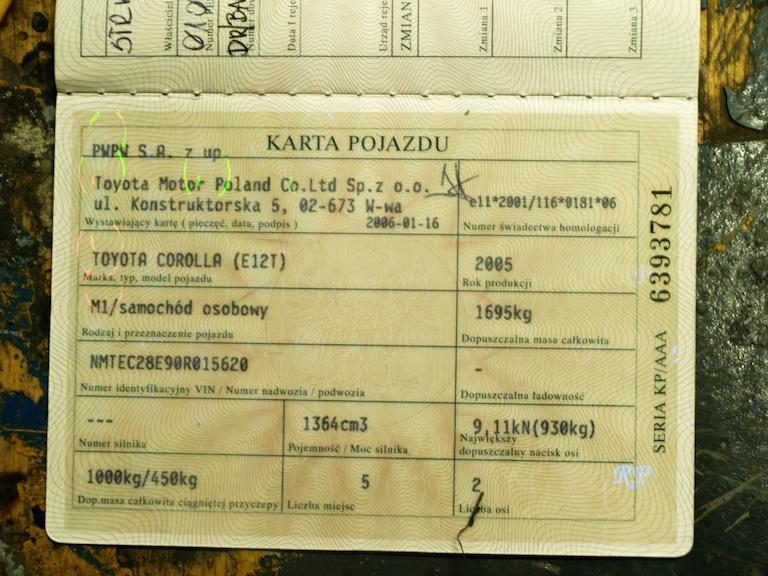 Właściciel
Data 1 rej
Urząd reje
ZMIAN
Zmiana 1
Zmiana 2
Zmiana 3
KARTA POJAZDU
PWPW S.A. z up.
Toyota Motor Poland Co.Ltd Sp.z o.o.
ul. Konstruktorska 5, 02-673 W-wa
Wystawiający kartę ( pieczęć, data, podpis ) 2006-01-16
e11*2001/116*0181*06
Numer świadectwa homologacji
TOYOTA COROLLA (E12T)
Marka, typ, model pojazdu
2005
Rok produkcji
M1/samochód osobowy
Rodzaj i przeznaczenie pojazdu
1695kg
Dopuszczalna masa całkowita
NMTEC28E90R015620
Numer identyfikacyjny VIN / Numer nadwozia / podwozia
-
Dopuszczalna ładowność
---
Numer silnika
1364cm3
Pojemność / Moc silnika
9,11kN(930kg)
Największy
dopuszczalny nacisk osi
1000kg/450kg
Dop.masa całkowita ciągniętej przyczepy
5
Liczba miejsc
2
Liczba osi
SERIA KP/AAA 6393781